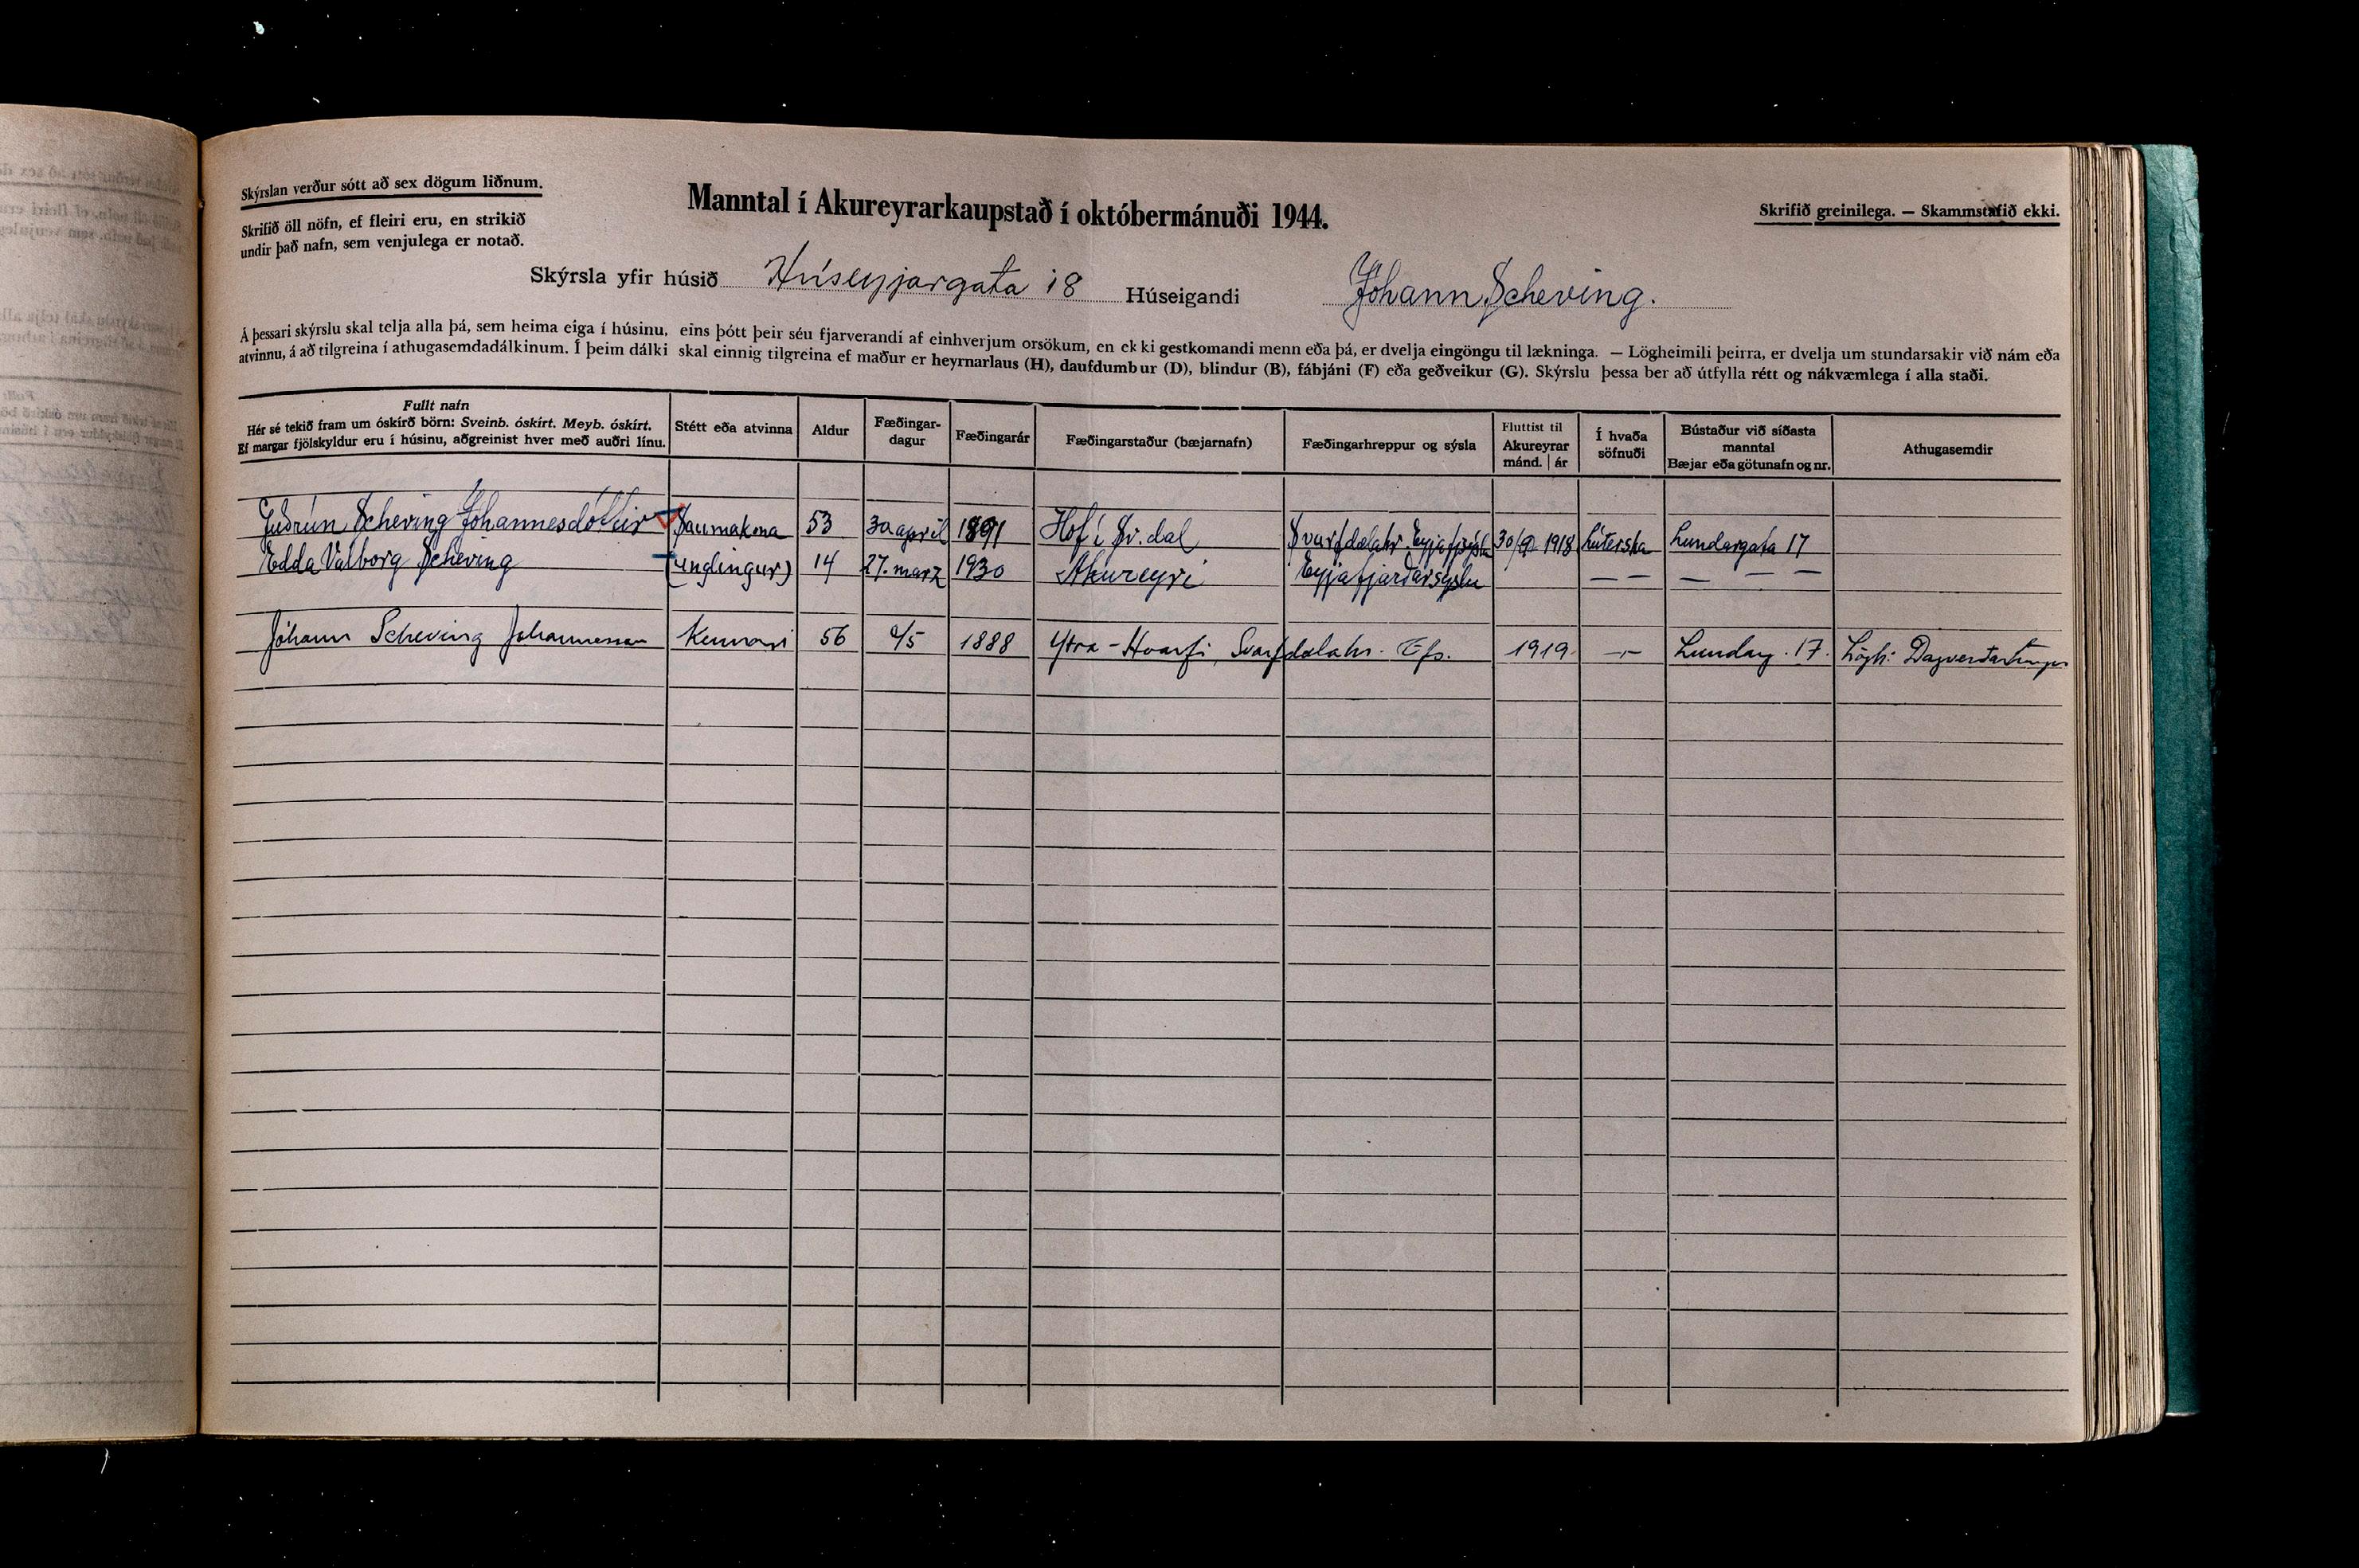 Skýrslan verður sótt að sex dögum liðnum.
Skrifið öll nöfn, ef fleiri eru, en strikið
undir það nafn, sem venjulega er notað.
Manntal í Akureyrarkaupstað í októbermánuði 1944.
Skrifið greinilega. — Skammstafið ekki.
Skýrsla yfir húsið Híseyjargata 18 Húseigandi Jóhann Scheving.
Á þessari skýrslu skal telja alla þá, sem heima eiga í húsinu, eins þótt þeir séu fjarverandi af einhverjum orsökum, en ekki gestkomandi menn eða þá, er dvelja eingöngu til lækninga. — Lögheimili þeirra, er dvelja um stundarsakir við nám eða
atvinnu, á að tilgreina í athugasemdadálkinum. Í þeim dálki skal einnig tilgreina ef maður er heyrnarlaus (H), daufdumbur (D), blindur (B), fábjáni (F) eða geðveikur (G). Skýrslu þessa ber að útfylla rétt og nákvæmlega í alla staði.
Fullt nafn
Hér sé tekið fram um óskírð börn: Sveinb. óskírt. Meyb. óskírt.
Ef margar fjölskyldur eru í húsinu, aðgreinist hver með auðri línu.
Stétt eða atvinna
Aldur
Fæðingar-
dagur
Fæðingarár
Fæðingarstaður (bæjarnafn)
Fæðingarhreppur og sýsla
Fluttist til
Akureyrar
mánd. | ár
Í hvaða
söfnuði
Bústaður við síðasta
manntal
Bæjar eða götunafn og nr.
Athugasemdir
Guðrún Scheving Jóhannesdóttir Saumakona 53 30 apríl 1891 Hof í Sv.dal Svarfdalahr. Eyjafjsýslu 30/9 1918 Lúterska Lundargata 17
Edda Valborg Scheving (unglingur) 14 27. marz 1930 Akureyri Eyjafjarðarsýslu — — — — —
Jóhann Scheving Jóhannesson Kennari 56 /5 1888 Ytra-Hvarfi, Svarfdalahr. Efs. 1919 —"— Lundarg. 17. Lögh: Dagverðartunga